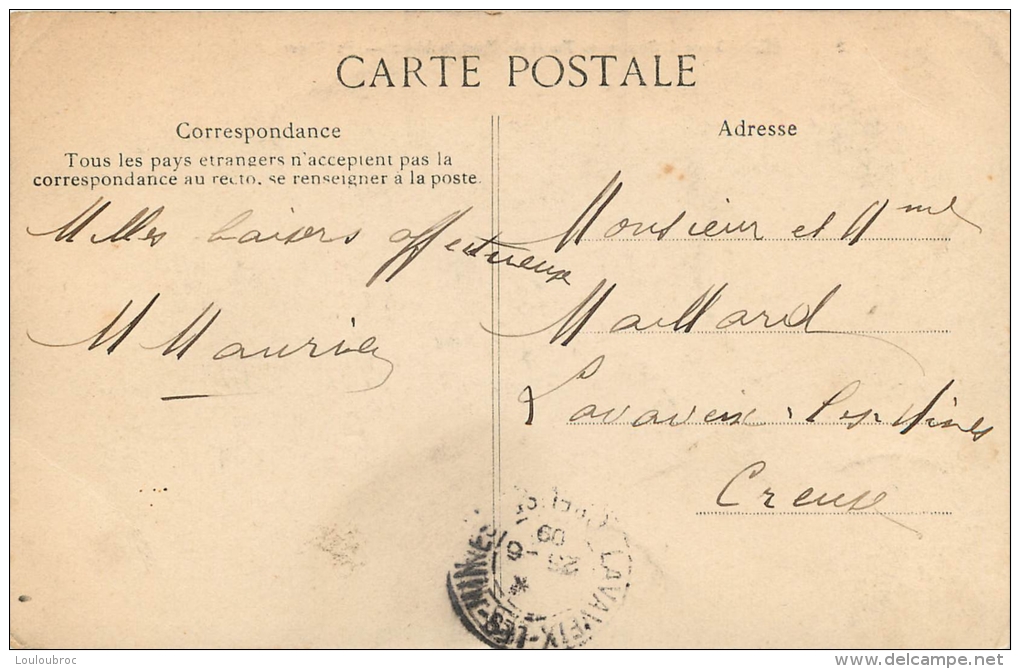 CARTE POSTALE
Correspondance
Tous les pays etrangers n'acceptent pas la
correspondance au recto, se renseigner à la poste.
Milles baisers affectueux
Adresse
Monsieur et Mme
Maillard
Lavaveix-les-Mines
Creuse
LAVAVEIX-LES-MINES
09
Louloubroc
delcampe.net